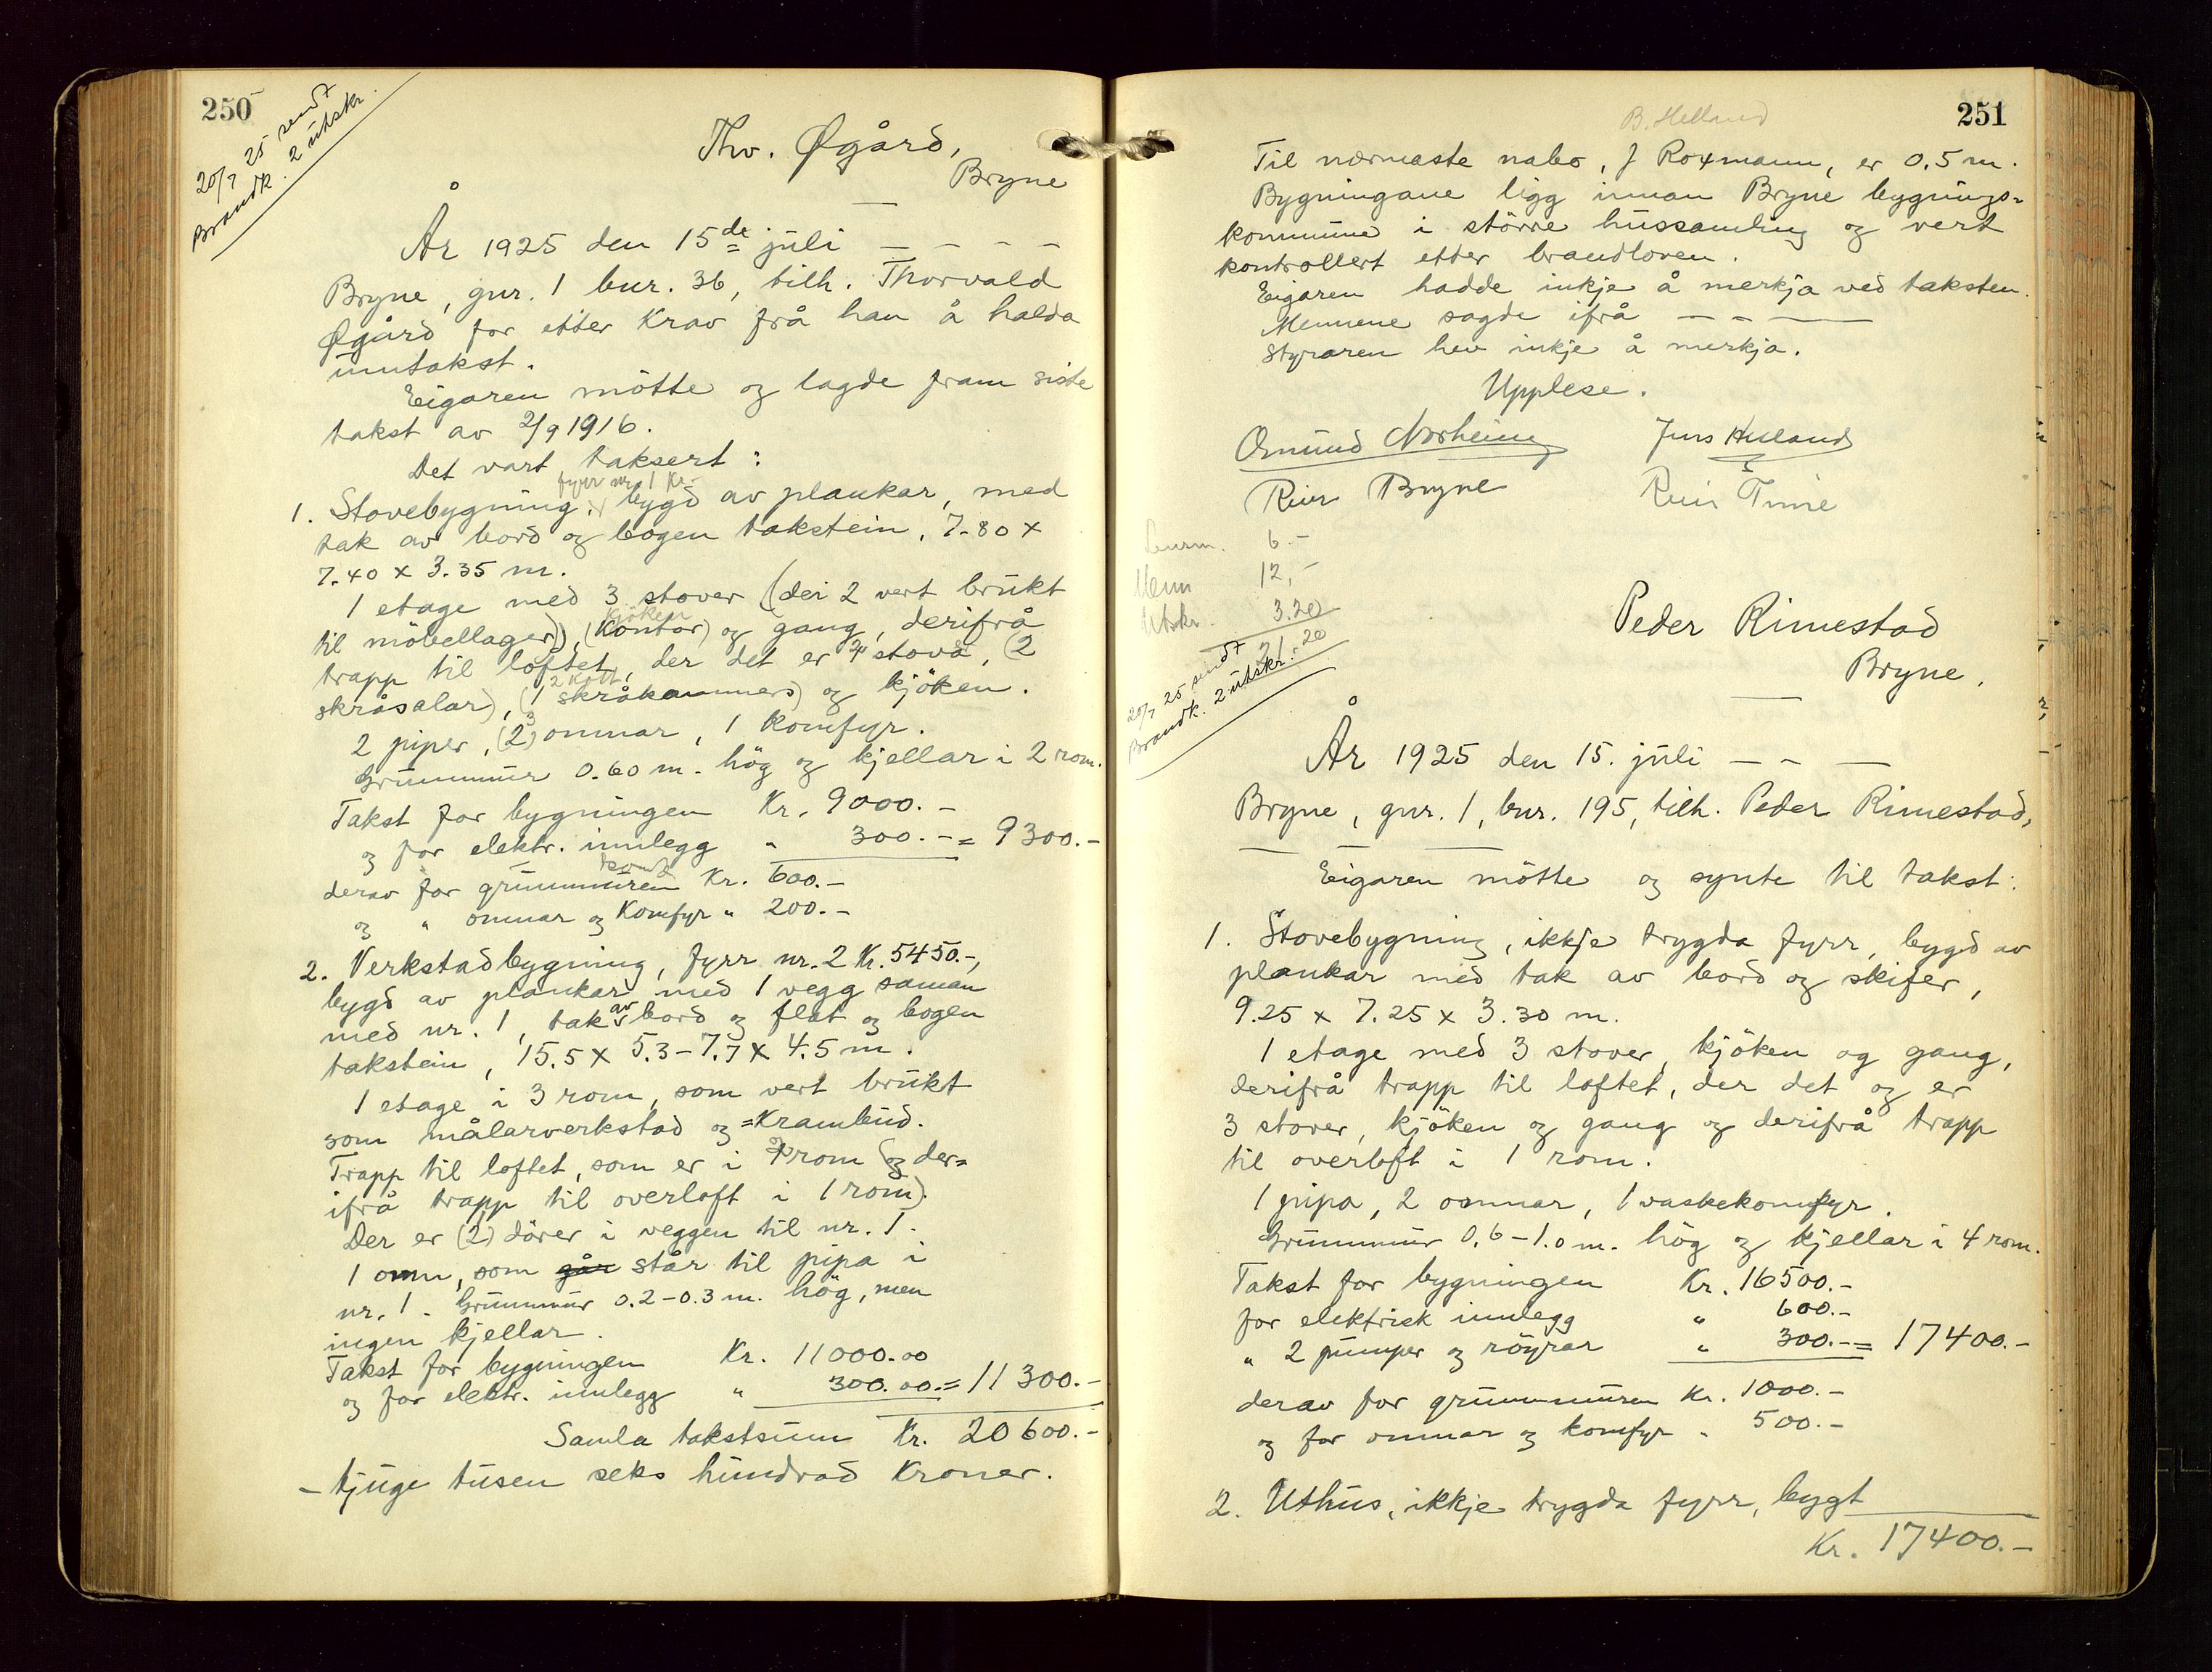 250
20/7 25 sendt
Brandk. 2 utskr.
Thv. Øgård,
Bryne
År 1925 den 15de juli — — — —
Bryne, gnr. 1 bnr. 36, tilh. Thorvald
Øgård for etter Krav frå han å halda
umtakst.
Eigaren mötte og lagde fram siste
takst av 2/9 1916.
Det vart taksert :
fyrr nr. 1 Kr.
1. Stovebygning, bygd av plankar, med
tak av bord og bogen takstein, 7.80 x
7.40 x 3.35 m.
1 etage med 3 stover (dei 2 vert brukt
kjöken
til möbellager), (Kontor) og gang, derifrå
trapp til loftet, der det er 4 stova, (2
2 kott
skråsalar), (1 skråkammers) og kjöken.
3
2 piper, (2) omnar, 1 komfyr.
Grunnmur 0.60 m. hög og kjellar i 2 rom.
Takst for bygningen Kr. 9000.-
og for elektr. innlegg " 300.- = 9300.-
derav for grunnmuren Kr. 600.-
og " omnar og Komfyr " 200.-
2. Verkstadbygning, fyrr nr. 2 Kr. 5450.-,
bygd av plankar med 1 vegg saman
av
med nr. 1, tak bord og flat og bogen
takstein, 15.5 x 5.3-7.7 x 4.5 m.
1 etage i 3 rom, som vert brukt
som målarverkstad og =Krambud.
Trapp til loftet, som er i rom (og der=
ifrå trapp til overloft i 1 rom).
Der er (2) dörer i veggen til nr. 1.
1 omn, som går står til pipa i
nr. 1. Grunnmur 0.2-0.3 m. hög, men
ingen kjellar.
Takst for bygningen Kr. 11000.00
og for elektr. innlegg " 300.00. = 11300.-
Samla takstsum Kr. 20600.-
- tjuge tusen seks hundrad Kroner.
251
B. Helland
Til nærmaste nabo, J Roxmann, er 0.5 m.
Bygningane ligg innan Bryne bygnings=
kommune i större hussamling og vert
kontrollert etter brandloven.
Eigaren hadde inkje å merkja ved taksten.
Mennene sagde ifrå — — —
Styraren hev inkje å merkja.
Upplese.
Osmund Norheim Jens Helland
Reier Bryne Reir Time
Lensm. 6.-
Menn 12,-
Utskr. 3.20
21.20
20/7 25 sendt
Brandk. 2 utskr.
Peder Rimestad
Bryne.
År 1925 den 15. juli — — —
Bryne, gnr. 1, bnr. 195, tilh. Peder Rimestad,
Eigaren mötte og synte til takst:
1. Stovebygning, ikkje trygda fyrr, bygd av
plankar med tak av bord og skifer,
9.25 x 7.25 x 3.30 m.
1 etage med 3 stover, kjöken og gang,
derifrå trapp til loftet, der det og er
3 stover, kjöken og gang og derifrå trapp
til overloft i 1 rom.
1 pipa, 2 omnar, 1 vaskekomfyr.
Grunnmur 0.6-1.0 m. hög og kjellar i 4 rom.
Takst for bygningen Kr. 16500.-
for elektrisk innlegg " 600.-
" 2 pumper og röyrar " 300.- = 17400.-
derav for grunnmuren Kr. 1000.-
og for omnar og komfyr " 500.-
2. Uthus, ikkje trygda fyrr, bygt
Kr. 17400.-